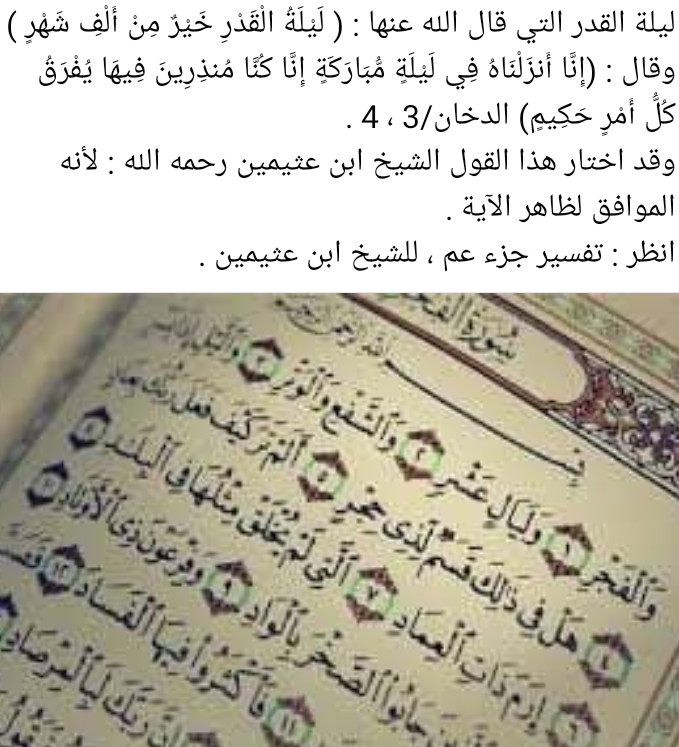 ليلة القدر التي قال الله عنها : ( لَيْلَةُ الْقَدْرِ خَيْرٌ مِنْ أَلْفِ شَهْرٍ )
وقال : (إِنَّا أَنزَلْنَاهُ فِي لَيْلَةٍ مُّبَارَكَةٍ إِنَّا كُنَّا مُنذِرِينَ فِيهَا يُفْرَقُ
كُلُّ أَمْرٍ حَكِيمٍ) الدخان/3 ، 4 .
وقد اختار هذا القول الشيخ ابن عثيمين رحمه الله : لأنه
الموافق لظاهر الآية .
انظر : تفسير جزء عم ، للشيخ ابن عثيمين .
سُورَةُ الفَجْرِ
بِسْمِ اللَّهِ الرَّحْمَٰنِ الرَّحِيمِ
وَٱلْفَجْرِ ١ وَلَيَالٍ عَشْرٍ ٢ وَٱلشَّفْعِ وَٱلْوَتْرِ ٣ وَٱلَّيْلِ إِذَا يَسْرِ
٤ هَلْ فِى ذَٰلِكَ قَسَمٌ لِّذِى حِجْرٍ ٥ أَلَمْ تَرَ كَيْفَ فَعَلَ رَبُّكَ بِعَادٍ
٦ إِرَمَ ذَاتِ ٱلْعِمَادِ ٧ ٱلَّتِى لَمْ يُخْلَقْ مِثْلُهَا فِى ٱلْبِلَٰدِ ٨
جَابُوا۟ ٱلصَّخْرَ بِٱلْوَادِ ٩ وَفِرْعَوْنَ ذِى ٱلْأَوْتَادِ ١٠
١١ فَأَكْثَرُوا۟ فِيهَا ٱلْفَسَادَ ١٢
إِنَّ رَبَّكَ لَبِٱلْمِرْصَادِ